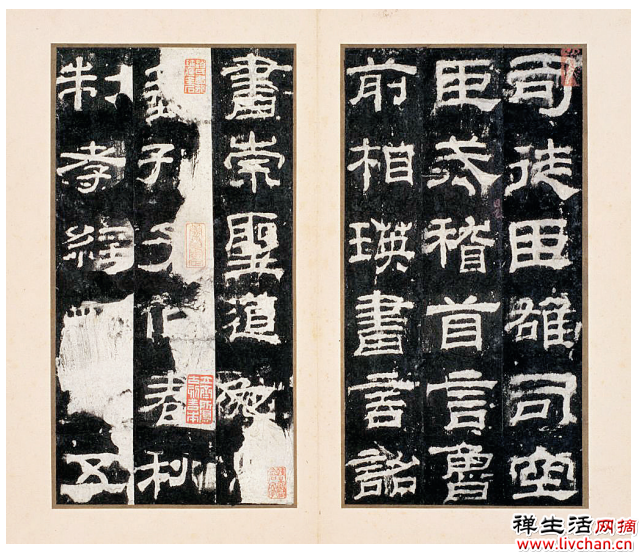 司徒臣雄司空
臣戒稽首言魯
前相瑛書言詔
書崇聖道勉
孔子作春秋
制孝經五
禅生活网摘
www.livchan.cn